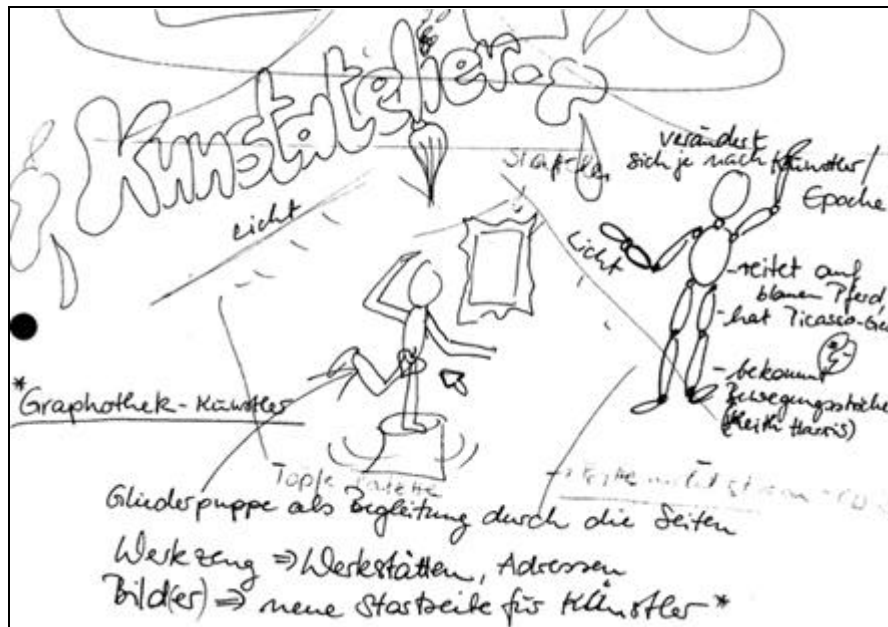 Kunstatelier
verändert
sich je nach Künstler/
Epoche
Licht
Licht
-reitet auf
blauem Pferd,
-hat Picasso-
- bekommt
Bewegungsstriche
(Keith Harris)
*Graphothek-Künstler
Töpfe Palette
Gliederpuppe als Begleitung durch die Seiten
Werkzeug ⇒ Werkstätten, Adressen
Bild(er) ⇒ neue Startseite für Künstler *